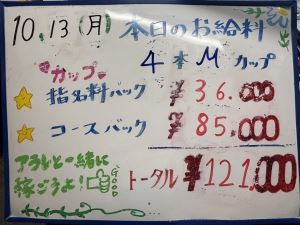 10.13(月) 本日のお給料
4本 M カップ
カップ
指名料バック ¥36.000
コースバック ¥85.000
トータル ¥121.000
一緒に
稼ごうよ! GOOD